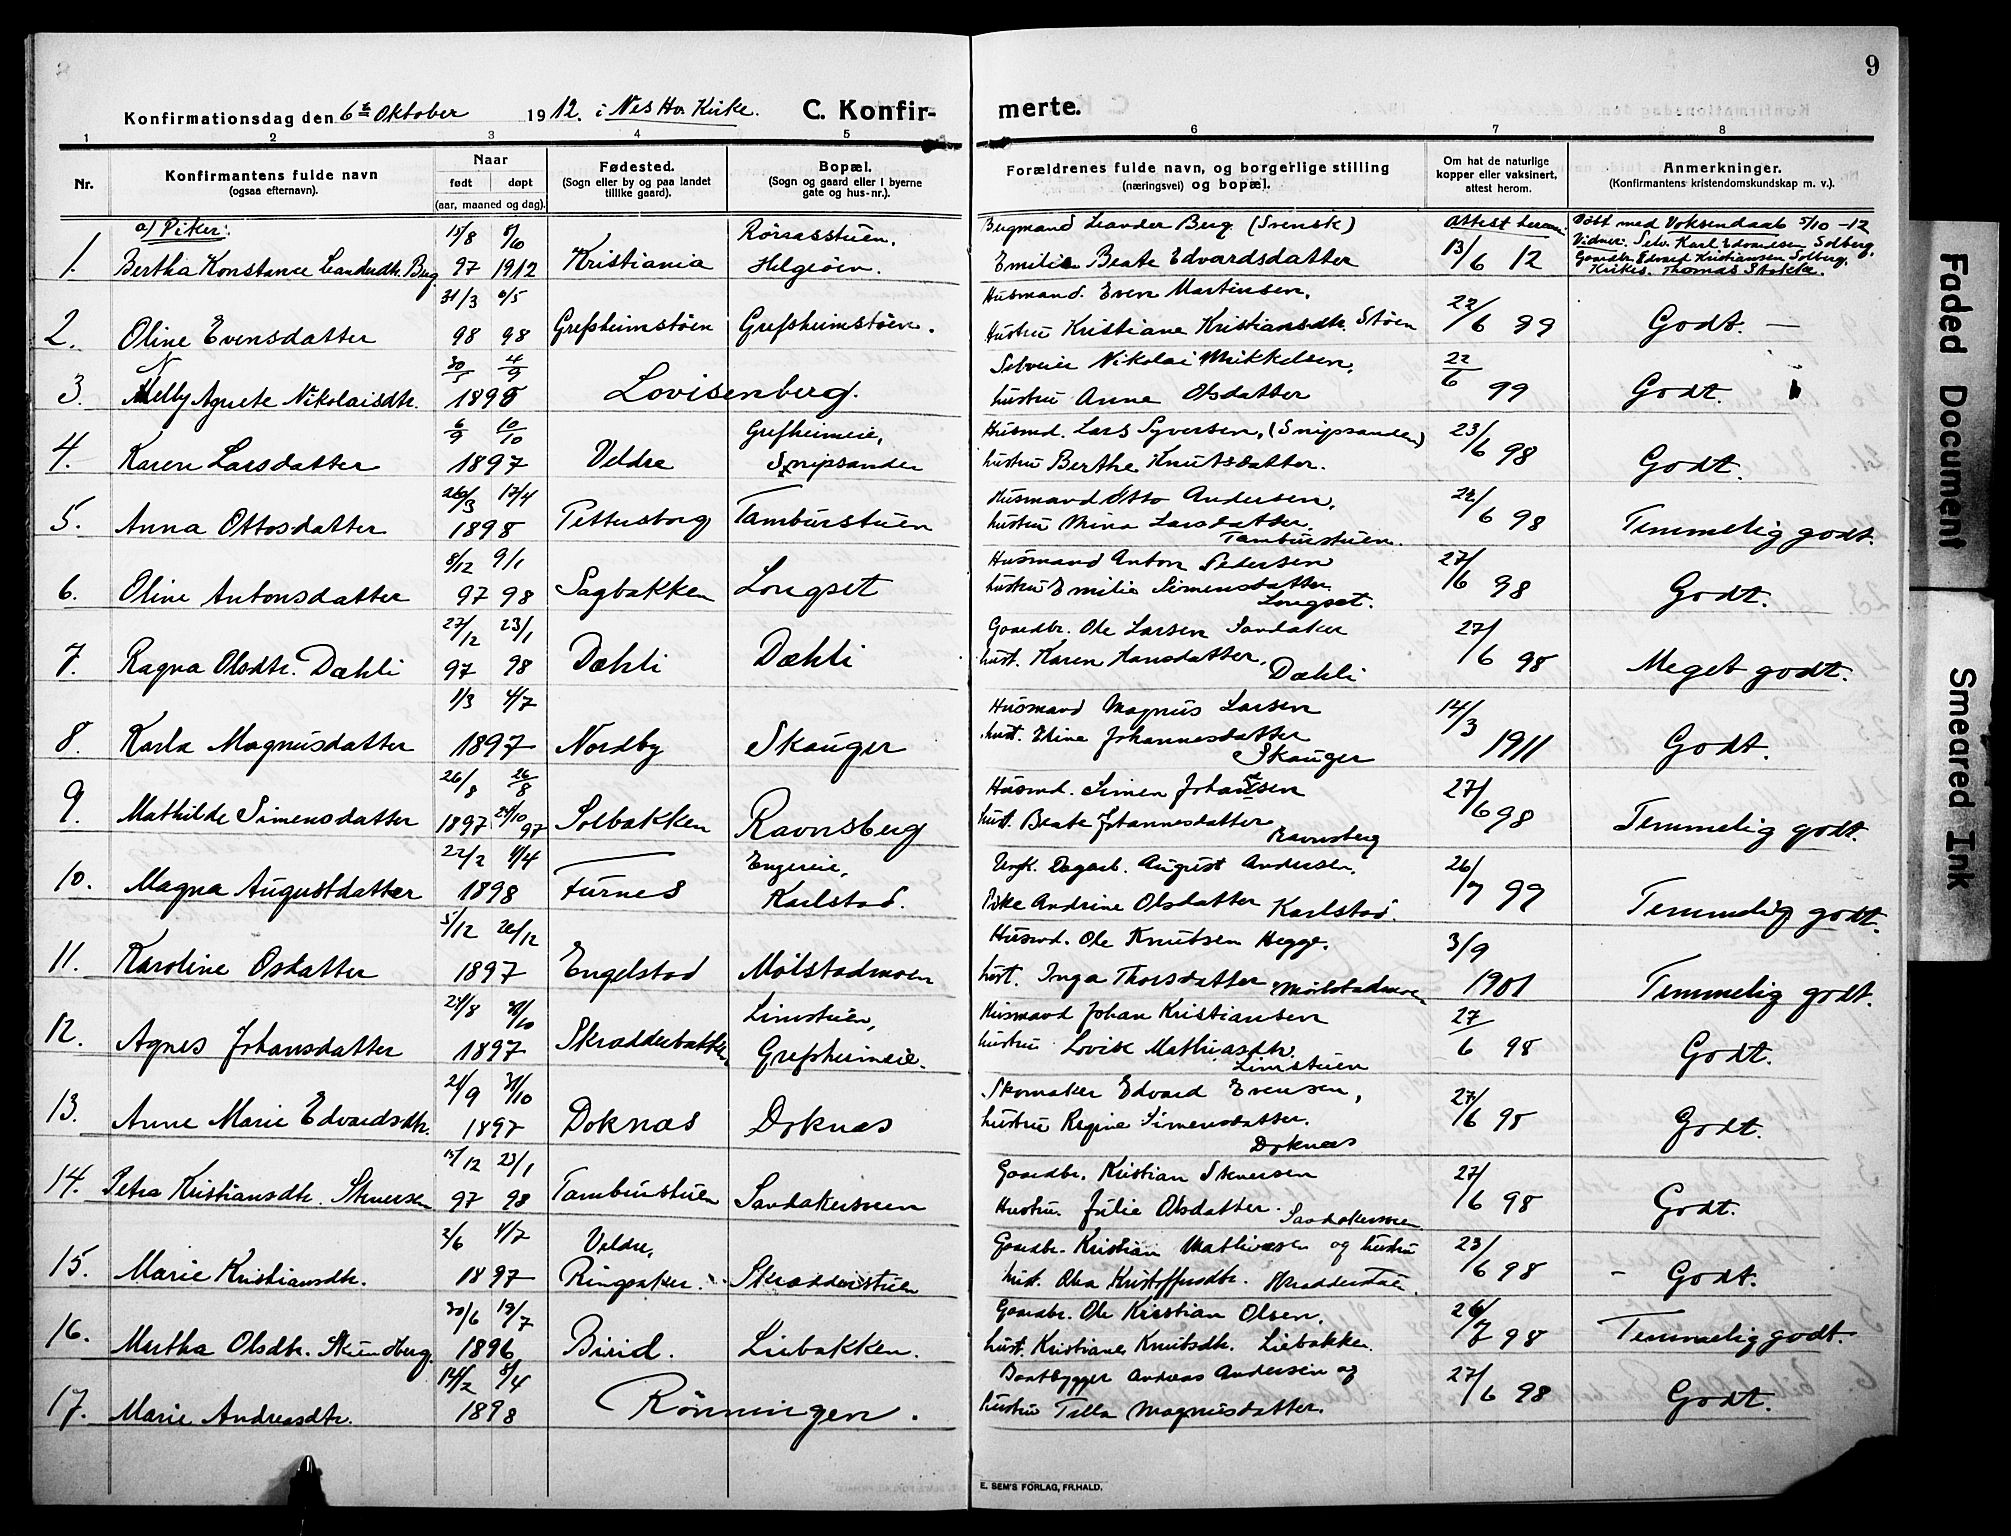 9
Konfirmationsdag den 6te Oktober 1912. i Nes Ho. Kirke. C. Konfirmerte.
1 2 3 4 5 6 7 8
Nr. Konfirmantens fulde navn (ogsaa efternavn). Naar født døpt (aar, maaned og dag). Fødested. (Sogn eller by og paa landet tillike gaard). Bopæl. (Sogn og gaard eller i byerne gate og hus-nr.). Forældrenes fulde navn, og borgerlige stilling (næringsvei) og bopæl. Om hat de naturlige kopper eller vaksinert, attest herom. Anmerkninger. (Konfirmantens kristendomskundskap m. v.).
a) Piker: 15/8 5/10 Rørsasstuen, Bergmand Leander Berg (Svensk) Attest herom: Døbt med Voksendaab 5/10 -12
Vidner: Selv. Karl Edvardsen Solberg,
1. Bertha Konstance Leandersdtr. Berg 97 1912 Kristiania Helgøen. Emilie Beate Edvardsdatter 13/6 12 Gaardbr. Edvard Kristiansen Solberg.
Kirkes. Thomas Stokke.
31/3 6/5 Husmand. Even Martinsen, 22/6 99
2. Oline Evensdatter 98 98 Grefsheimstøen Grefsheimstøen. Hustru Kristiane Kristiansdtr. Støen Godt. —
30/5 4/9 Selveier Nikolai Mikkelsen, 22/6
3. Nelly Agnete Nikolaisdtr. 1898 Lovisenberg. hustru Anne Olsdatter 99 Godt.
6/9 10/10 Grefheimeie, Husmd. Lars Syversen, (Snipsanden) 23/6 98
4. Karen Larsdatter 1897 Veldre Snipsanden hustru Berthe Knutsdatter. Godt.
26/3 17/4 Husmand Otto Andersen, 22/6 98
5. Anna Ottosdatter 1898 Pettersborg Tamburstuen hustru Mina Larsdatter. Temmelig godt.
Tamburstuen.
8/12 9/1 Husmand Anton Pedersen 27/6 98
6. Oline Antonsdatter 97 98 Sagbakken Longset hustru Emilie Simensdatter Godt.
Longset.
27/12 23/1 Gaardbr. Ole Larsen Sandaker 27/6 98
7. Ragna Olsdtr. Dæhli 97 98 Dæhli Dæhli hust. Karen Hansdatter, Dæhli Meget godt.
1/3 4/7 Husmand Magnus Larsen 14/3
8. Karla Magnusdatter 1897 Nordby Skauger hust. Eline Johannesdatter 1911 Godt.
Skauger
26/8 26/8 Husmd. Simen Johansen 27/6 98
9. Mathilde Simensdatter 1897 24/10 97 Solbakken Ravnsberg hust. Beate Johannesdatter Temmelig godt.
Ravnsberg
22/2 11/4 Engereie, Ungk. Dagarb. August Andersen, 26/7 99
10. Magna Augustdatter 1898 Furnes Karlstad. Pike Andrine Olsdatter Karlstad Temmelig godt.
5/12 26/12 Husmd. Ole Knutsen Hegge. 3/9
11. Karoline Osdatter 1897 Engelstad Mølstadmoen hust. Inga Thorsdatter Mølstadmoen 1901 Temmelig godt.
28/8 31/10 Limstuen, Husmand Johan Kristiansen 27/6 98
12. Agnes Johansdatter 1897 Skrædderbakken Grefsheimeie. hustru Lovise Mathiasdtr. Godt.
Limstuen
21/9 31/10 Skomaker Edvard Evensen, 27/6 98
13. Anne Marie Edvardsdtr. 1897 Doknæs Doknæs hustru Regine Simensdatter. Godt.
Doknæs
15/12 23/1 Gaardbr. Kristian Sknersen 27/6 98
14. Petra Kristiansdtr. Skversen 97 98 Tamburstuen Sandakersveen Hustru. Julie Olsdatter. Sandakersveen Godt.
2/6 4/7 Veldre, Gaardbr. Kristian Mathiesen og hustru 23/6 98
15. Marie Kristiansdtr. 1897 Ringsaker. Skrædderstuen hust. Olea Kristoffersdtr. Skræddersta. - Godt.
20/6 19/7 Gaardbr. Ole Kristian Olsen, 26/7 98
16. Martha Olsdtr. Skundberg. 1896 Birid. Liebakken. hust. Kristiane Knutsdtr. Liebakken. Temmelig godt.
14/2 8/4 Baatbygger Andreas Andersen og 27/6 98
17. Marie Andreasdtr. 1898 Rønningen. hustru Tilla Magnusdatter. Godt.
E. SEM'S FORLAG, FR.HALD.
Faded Document
Smeared Ink